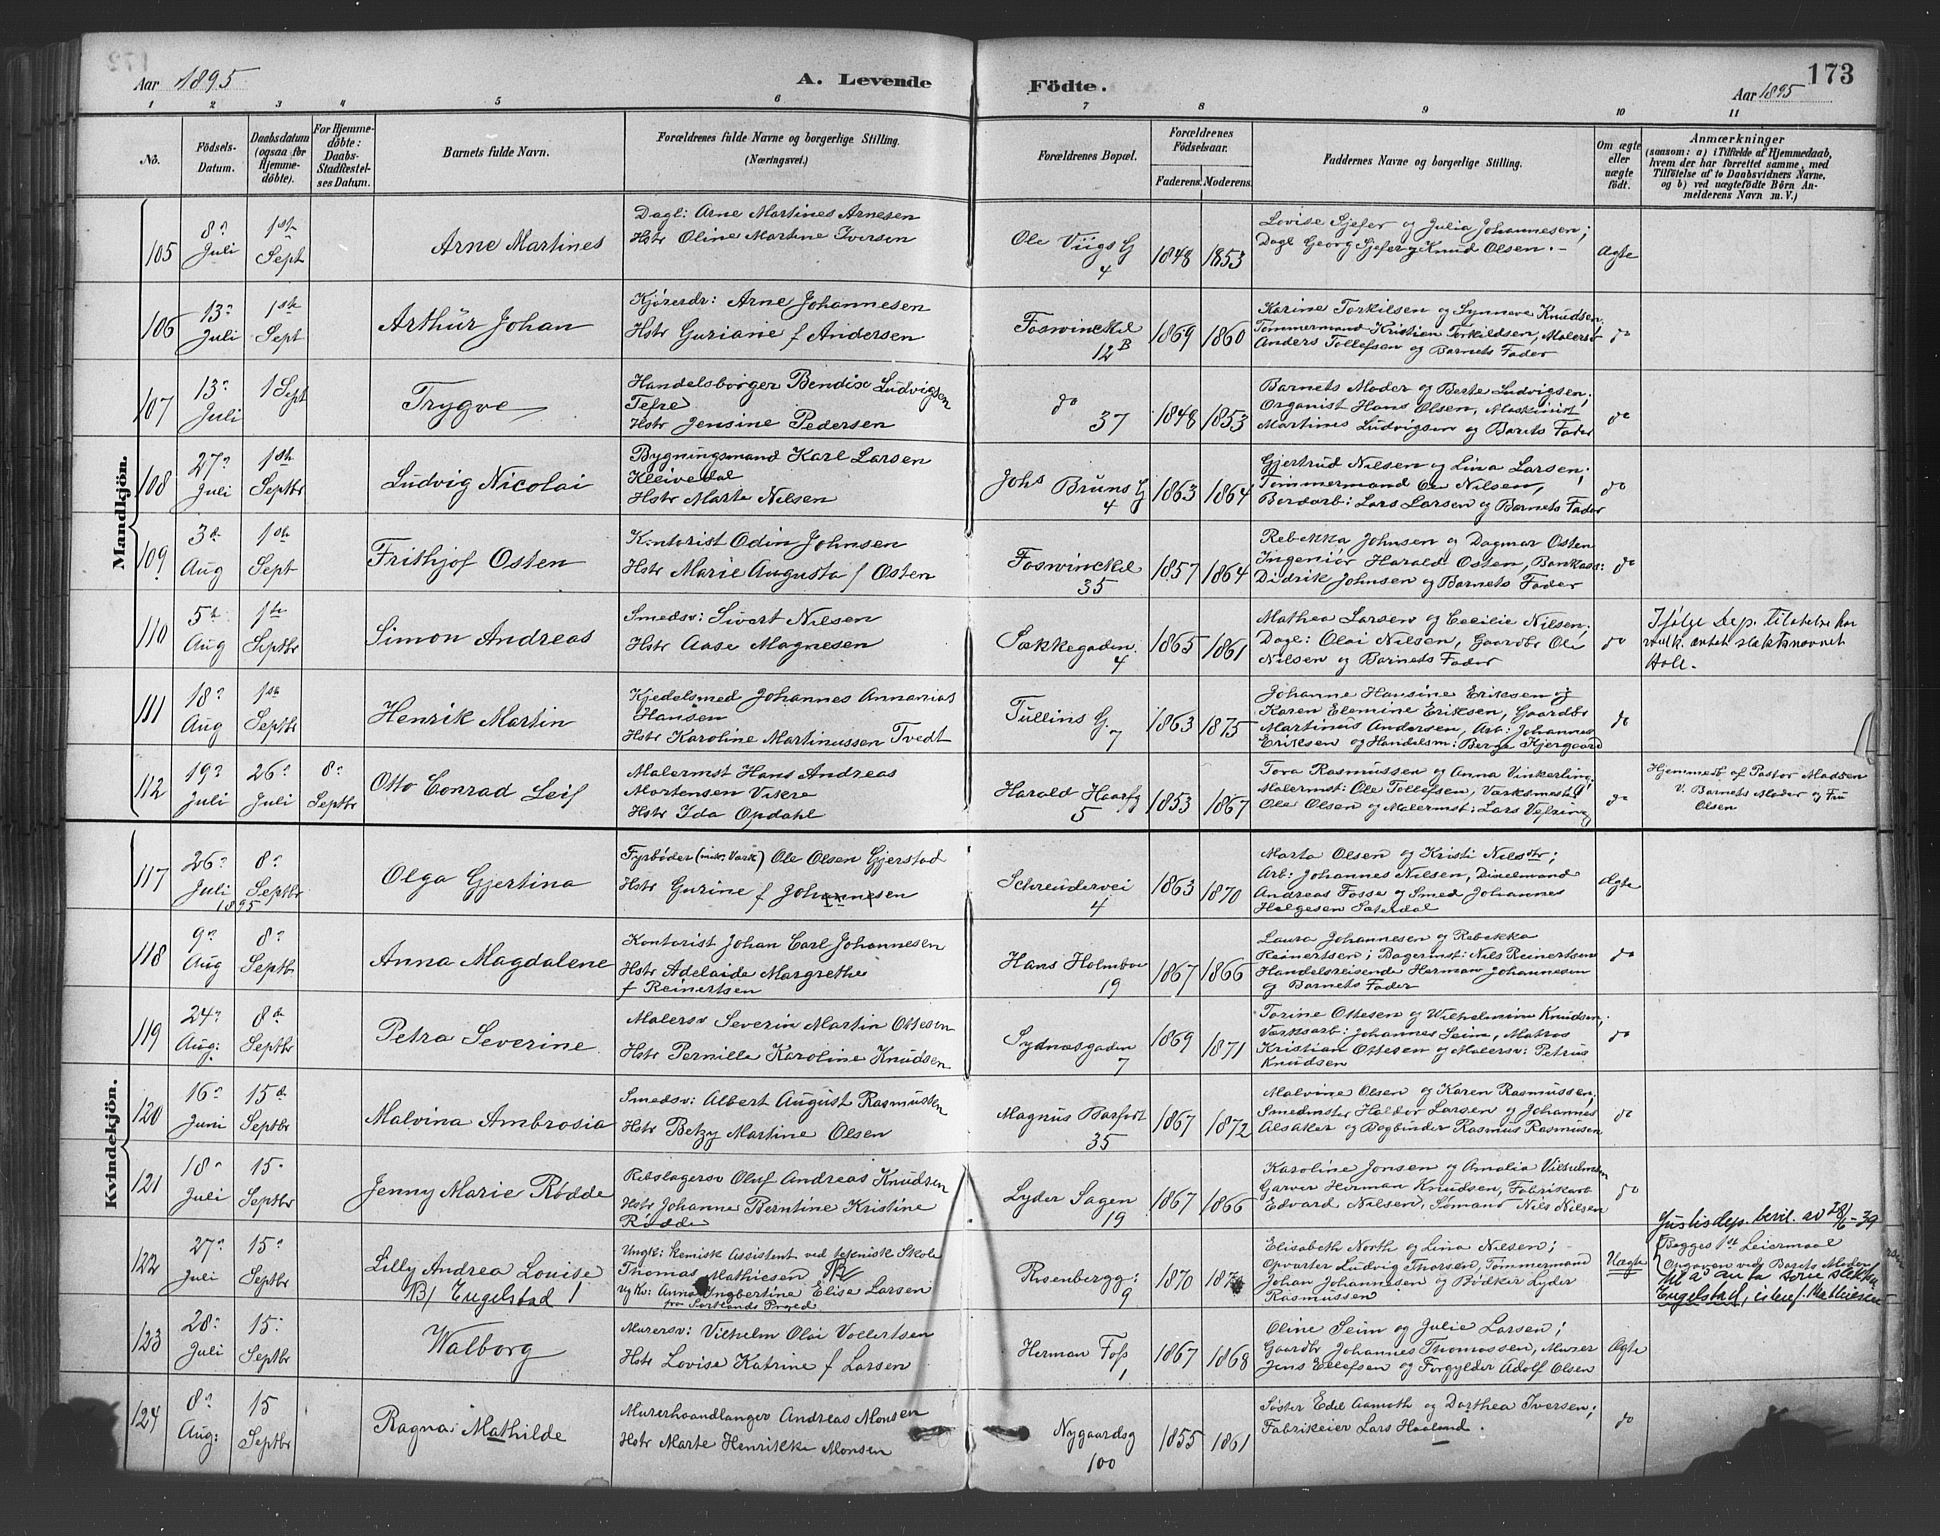 Aar 1895
A. Levende
Födte.
Aar 1895
173
1 2 3 4 5 6 7 8 9 10 11
No.
Födsels-
Datum.
Daabsdatum
(ogsaa for
Hjemme-
döbte).
For Hjemme-
döbte:
Daabs-
Stadfæstel-
ses Datum.
Barnets fulde Navn.
Forældrenes fulde Navne og borgerlige Stilling.
(Næringsvei.)
Forældrenes Bopæl.
Forældrenes
Födselsaar.
Faderens. Moderens.
Faddernes Navne og borgerlige Stilling.
Om ægte
eller
uægte
födt.
Anmærkninger
(saasom: a) i Tilfælde af Hjemmedaab,
hvem der har forrettet samme, med
Tilföielse af to Daabsvidners Navne,
og b) ved uægtefödte Börn An-
melderens Navn m. V.)
Mandkjön.
105
8de
Juli
1ste
Sept
Arne Martines
Dagl: Arne Martines Arnesen
Hstr Oline Martine Iversen
Ole Viigs G
4
1848 1853
Lovise Sjefer og Julia Johannesen;
Dagl Georg Sjefer og Knud Olsen. -
Ægte
106
13de
Juli
1ste
Sept
Arthur Johan
Kjøresdr: Arne Johannesen
Hstr Guriane f Andersen
Foswinckel
12B
1869 1860
Karine Torkilsen og Synneve Knudsen,
Tømmermand Kristian Torkildsen, Malersv
Anders Tollefsen og Barnets Fader
do
107
13de
Juli
1 Sept
Trygve
Handelsborger Bendix Ludvigsen
Tefre
Hstr Jensine Pedersen
do
37
1848 1853
Barnets Moder og Berte Ludvigsen,
Organist Hans Olsen, Maskinist
Martines Ludvigsen og Barnets Fader
do
108
27de
Juli
1ste
Septbr
Ludvig Nicolai
Bygningsmand Karl Larsen
Kleivedal
Hstr Marta Nilsen
Johs Bruns G
4
1863 1864
Gjertrud Nilsen og Lina Larsen;
Tømmermand Ole Nilsen,
Bordarb: Lars Larsen og Barnets Fader
do
109
3de
Aug
1ste
Sept
Frithjof Osten
Kontorist Odin Johnsen
Hstr Marie Augusta f Osten
Foswinckel
35
1857 1864
Rebekka Johnsen og Dagmar Osten
Ingeniør Harald Osten, Bankass:
Didrik Johnsen og Barnets Fader
do
110
5te
Aug
1ste
Septbr
Simon Andreas
Smedsv: Sivert Nilsen
Hstr Aase Magnesen
Sækkegaden
4
1865 1861
Mathea Larsen og Cecilie Nilsen,
Dagl: Olai Nilsen, Gaardbr Ole
Nilsen og Barneds Fader
do
Ifølge Dep. tilatelse har
vedk. antat slektsnavnet
Hole.
111
18de
Aug
1ste
Septbr
Henrik Martin
Kjedelsmed Johannes Annanias
Hansen
Hstr Karoline Martinussen Tvedt
Tullins G
7
1863 1875
Johanne Hansine Eriksen og
Karen Elemine Eriksen, Gaardbr
Martinus Andersen, Arb: Johannes
Eriksen og Handelsm: Berge Kjergaard
do
112
19de
Juli
26de
Juli
8de
Septbr
Otto Conrad Leif
Malermst Hans Andreas
Mortensen Vikre
Hstr Ida Opdahl
Harald Haarfg
5
1853 1867
Tora Rasmussen og Anna Vinkerling,
Malermst: Ole Tollefsen, Værksmest:
Ole Olsen og Malermst: Lars
do
Hjemmedb af Pastor Madsen
V. Barnets Moder og Fru
Olsen
Kvindekjön.
117
26de
Juli
1895
8de
Septbr
Olga Gjertina
Fyrbøder (mek. Værk) Ole Olsen Gjerstad
Hstr Gurine f Johannesen
Schreudervei
4
1863 1870
Marta Olsen og Kristi Nilsdtr;
Arb: Johannes Nilsen, Dixelmand
Andreas Fosse og Smed Johannes
Helgesen Sæterdal
Ægte
118
9de
Aug
8de
Septbr
Anna Magdalene
Kontorist Johan Carl Johannesen
Hstr Adelaide Margrethe
f Reinertsen
Hans Holmboe
19
1867 1866
Laura Johannesen og Rebekka
Reinertsen; Bagermst: Nils Reinertsen
Handelsreisende Herman Johannesen
og Barnets Fader
do
119
24de
Aug:
8de
Septbr
Petra Severine
Malersv Severin Martin Ottesen
Hstr Pernille Karoline Knudsen
Sydnæsgaden
7
1869 1871
Torine Ottesen og Wilhelmine Knudsen,
Værksarb: Johannes Seim, Matros
Kristian Ottesen og Malersv: Petrus
Knudsen
do
120
16de
Juni
15de
Septbr
Malvina Ambrosia
Smedsv: Albert August Rasmussen
Hstr Betzy Martine Olsen
Magnus Barfort
35
1867 1872
Malvine Olsen og Karen Rasmussen,
Smedmster Haldor Larsen og Johannes
Alsaker og Bogbinder Rasmus Rasmusen
do
121
18de
Juli
15de
Septbr
Jenny Marie Rødde
Rebslagersv Oluf Andreas Knudsen
Hstr Johanne Berntine Kristine
Rødde
Lyder Sagen
19
1867 1866
Karoline Jonsen og Amalia Vilhelmsen
Garver Herman Knudsen, Fabrikarb
Edvard Nilsen, Sømand Nils Nilsen
do
122
27de
Juli
15de
Septbr
Lilly Andrea Louise
B/ Engelstad /
Ungk: Kemisk Assistent ved teknisk Skole
Thomas Mathiesen
ugks: Anna Ingbertine Elise Larsen
fra Sortlands Prgæd
Rosenbergg:
9
1870
Elisabeth North og Lina Nilsen;
Opvarter Ludvig Thorsen, Tømmermand
Johan Johannesen og Bødker Lyder
Rasmussen
Uægte
Justisdep. bevil. av 28/6-39
Begges 1ste Leiermaal
Opgaven ved Barnets Moder
til å anta som slektsn.
Engelstad, istedf. Mathiesen
123
28de
Juli
15de
Septbr
Walborg
Murersv: Vilhelm Olai Vollertsen
Hstr Lovise Katrine f Larsen
Herman Foss
1
1867 1868
Oline Seim og Julie Larsen;
Gaardbr Johannes Thomassen, Murer
Jens Ellefsen og Forgylder Adolf Olsen
Ægte
124
8de
Aug:
15
Septbr
Ragna Mathilde
Murerhaandlanger Andreas Monsen
Hstr Marte Henrikke Monsen
Nygaardsg
100
1855 1861
Søster Edel Aamoth og Dorthea Iversen;
Fabrikeier Lars Haaland.
do